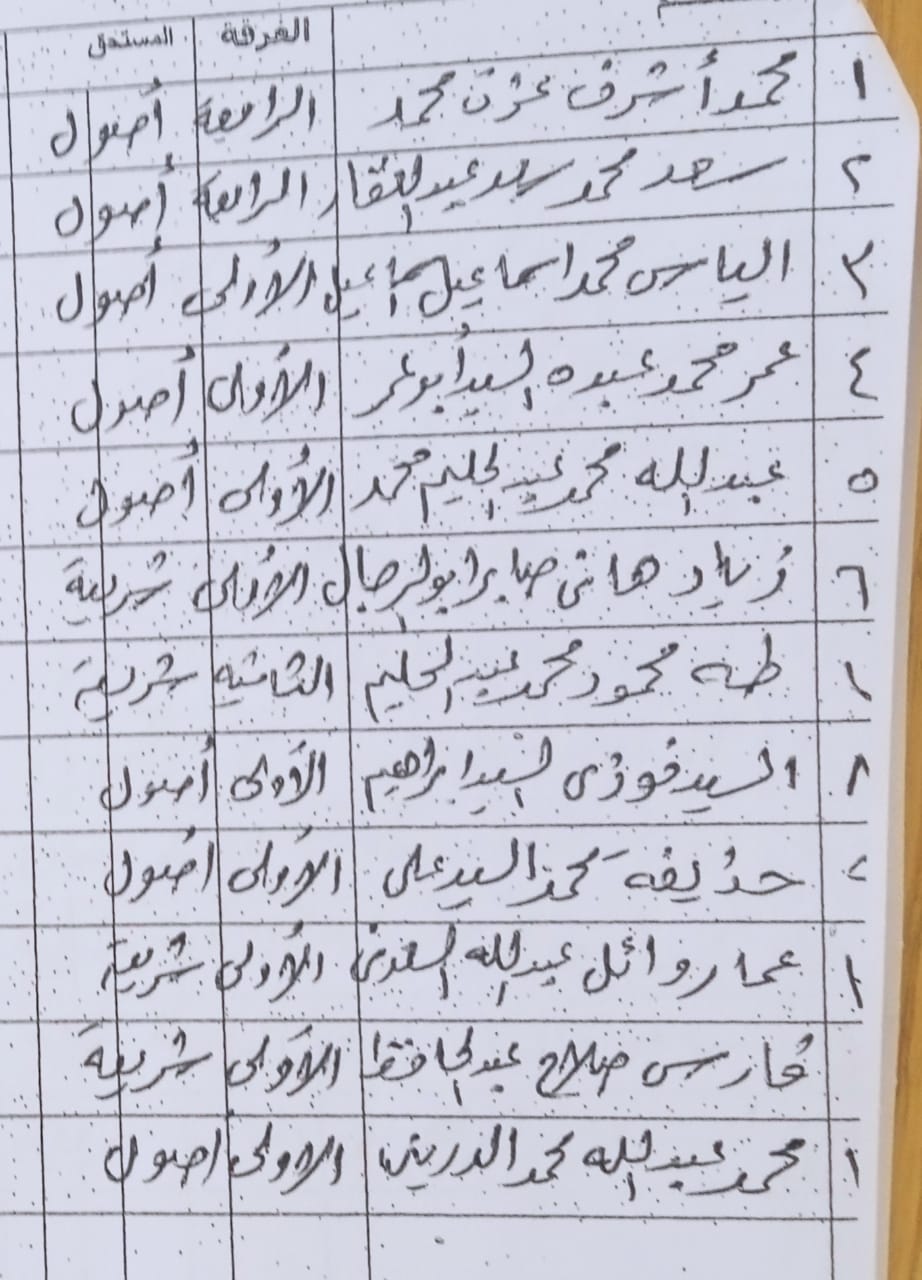 الفرقة المستحق
١ محمد أشرف عزت محمد الرابعة أصول
٢ سعد محمد سعد عبد الغفار الرابعة أصول
٣ الياس محمد اسماعيل اسماعيل الأولى أصول
٤ عمر محمد عبده السيد أبو عمر الأولى أصول
٥ عبد الله محمد عبد الحليم محمد الأولى أصول
٦ زياد هانى صابر ابو الرجال الأولى شريعة
١ طه محمود محمد عبد الحليم الثانيه شريعة
٨ السيد فوزى السيد ابراهيم الأولى أصول
حذيفة محمد السيد على الأولى اصول
١ عمار وائل عبد الله السعدنى الأولى شريعة
فارس صلاح عبد الحافظ الأولى شريعة
١ محمد عبد الله محمد الدرينى الاولى اصول